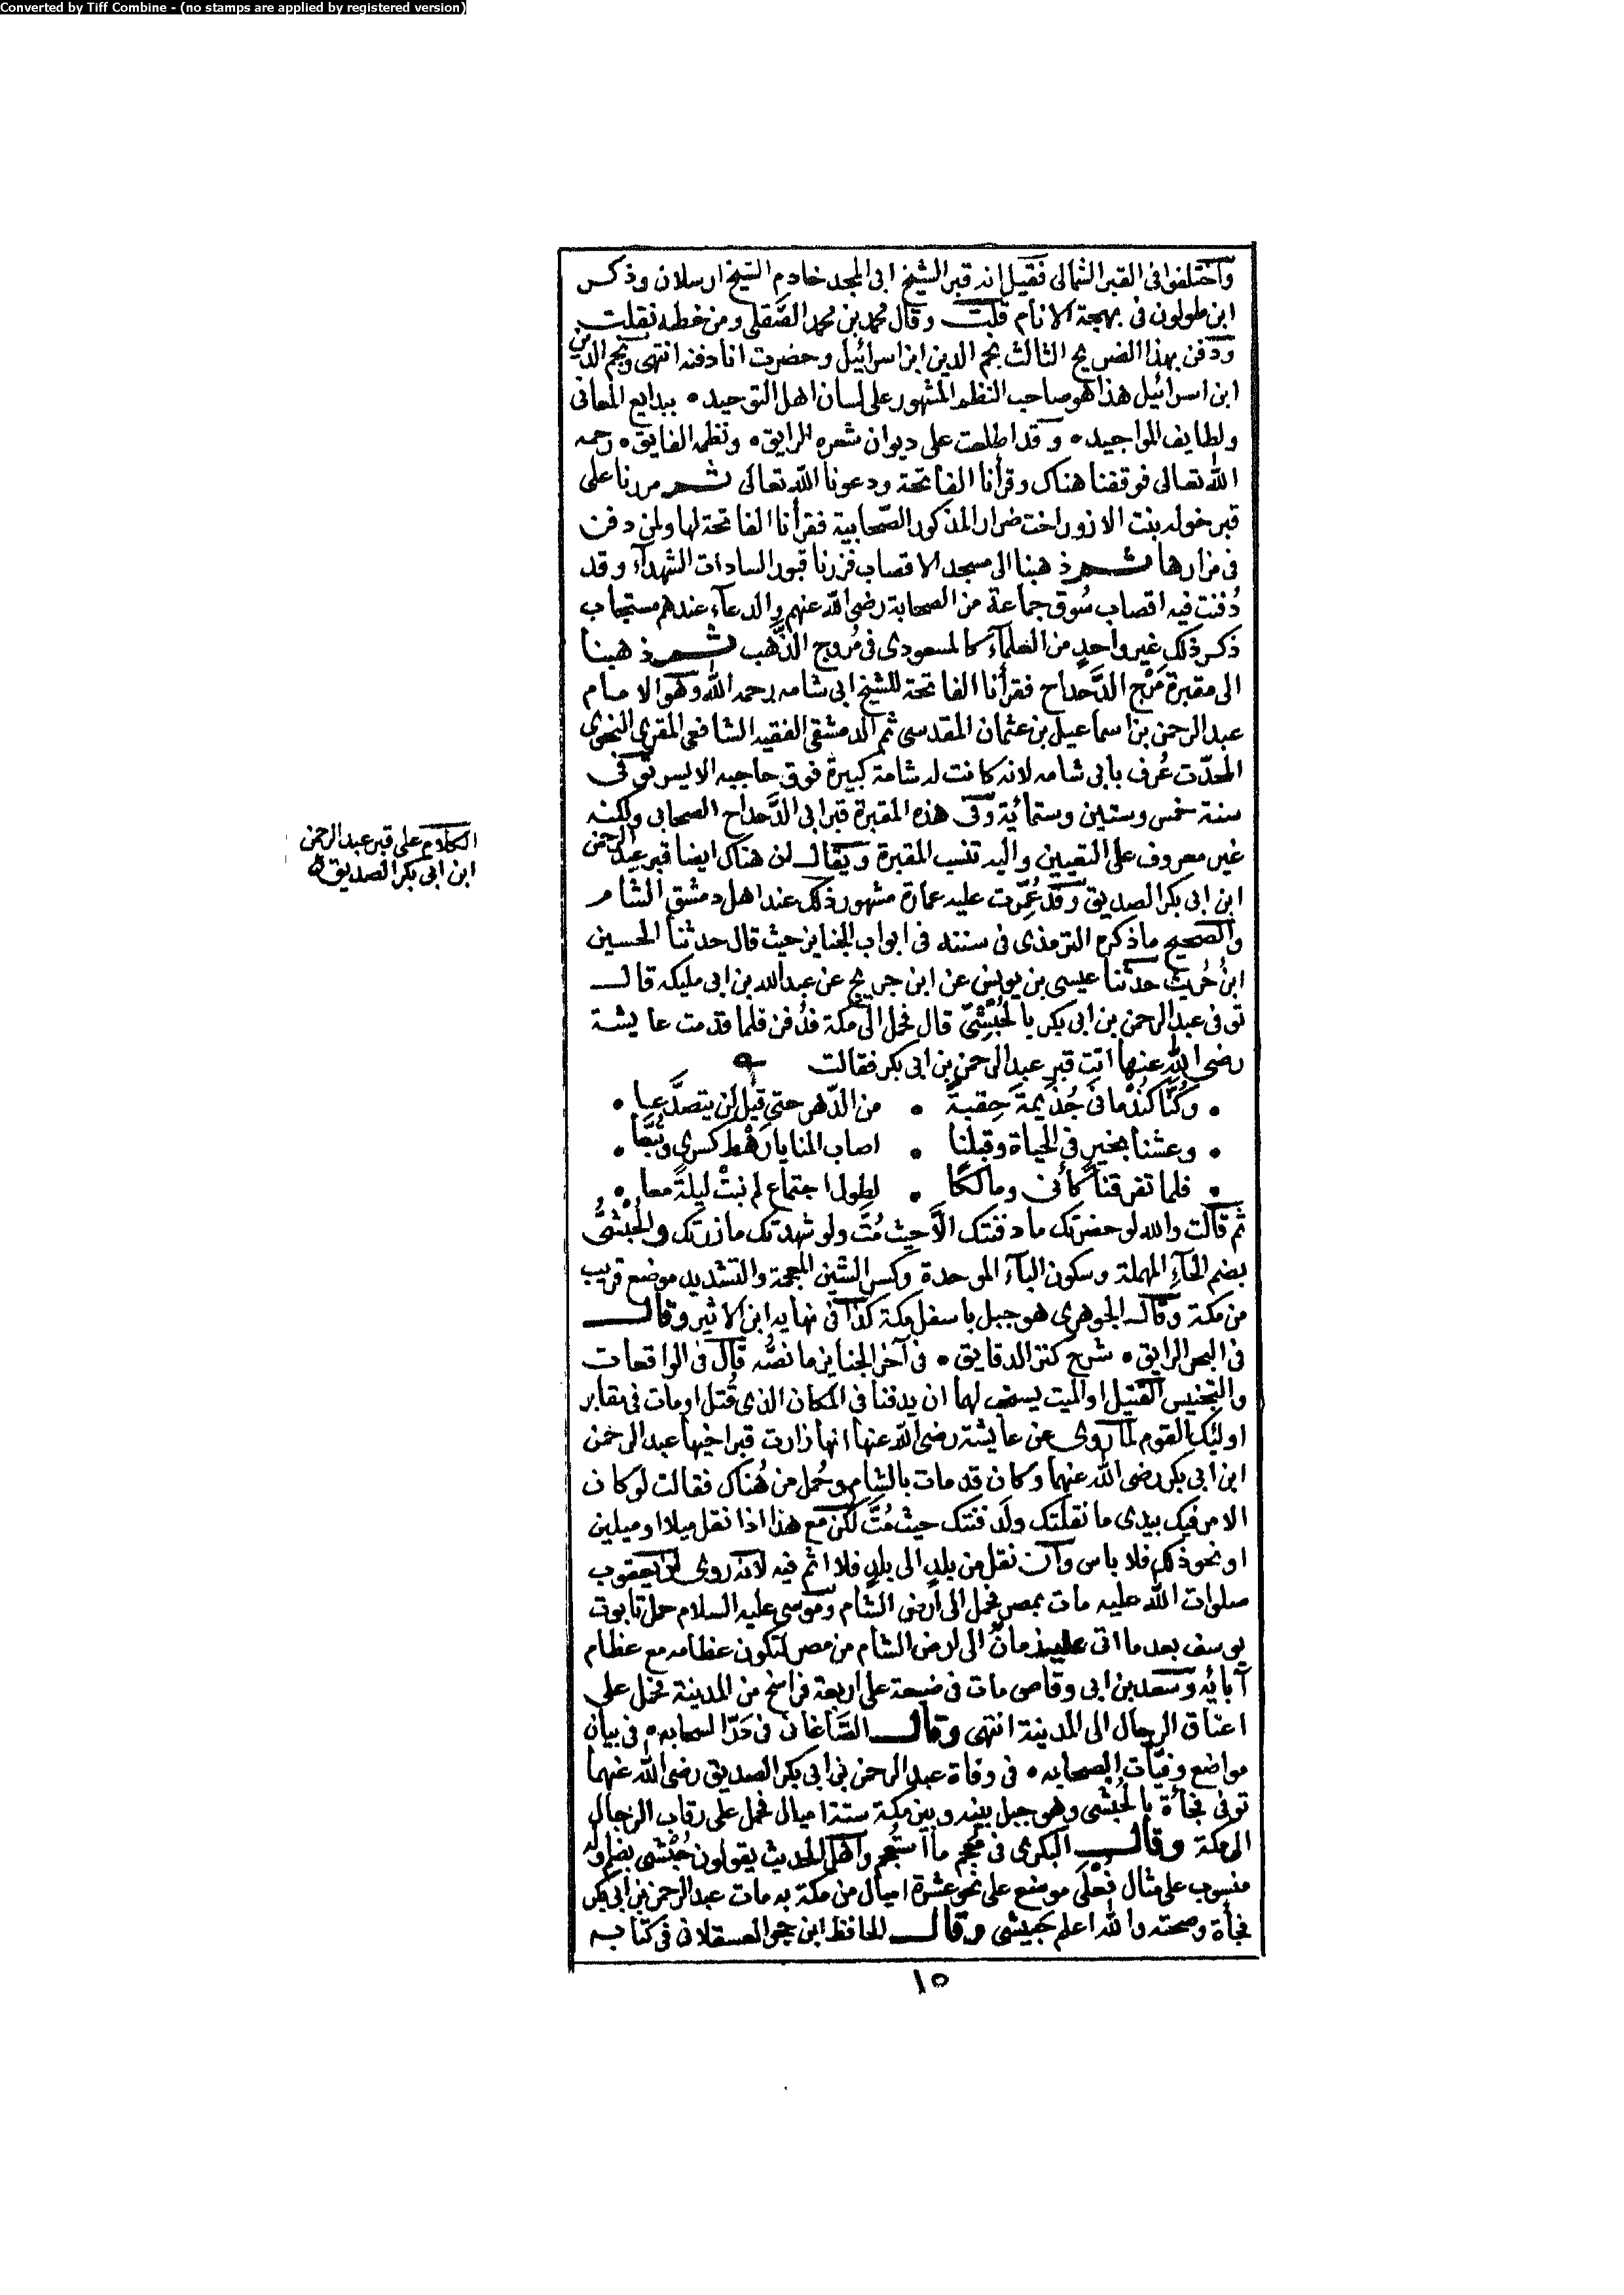 Converted by Tiff Combine - (no stamps are applied by registered version)
واختلفوا فى القبر الشمالى فقيل انه قبر الشيخ ابى المجد خادم الشيخ ارسلان وذكر
ابن طولون فى بهجة الانام قلت وقال محمد بن محمد الصَّقلى ومن خطه نقلت
ودفن بهذا الضريح الثالث نجم الدين ابن اسرائيل وحضرت انا دفنه انتهى ونجم الدين
ابن اسرائيل هذا هو صاحب النظم المشهور على لسان اهل التوحيد • ببدايع المعانى
ولطايف المواجيد • وقد اطلعت على ديوان شعره الرايق • ونظمه الفايق • رحمه
الله تعالى فوقفنا هناك وقرأنا الفاتحة ودعونا الله تعالى ثم مررنا على
قبر خوله بنت الازور اخت ضرار المذكور الصَّحابية فقرأنا الفاتحة لها ولمن دفن
فى مزارها ثم ذهبنا الى مسجد الاقصاب فزرنا قبور السادات الشهدآء وقد
دُفنت فيه اقصاب سُوق جماعة من الصحابة رضى الله عنهم والدعآء عندهم مستجاب
ذكر ذلك غير واحدٍ من العلمآء كالمسعودى فى مُروج الذَّهب ثم ذهبنا
الى مقبرة مَرْج الدَّحداح فقرأنا الفاتحة للشيخ ابى شامه رحمه الله وهو الامام
عبد الرحمن بن اسماعيل بن عثمان المقدسى ثم الدمشقى الفقيه الشافعى المقرى النحوى
المحدّث عُرف بابى شامه لانه كانت له شامة كبيرة فوق حاجبه الايسر توفى
سنة خمس وستين وستمائية وفى هذه المقبرة قبر ابى الدَّحداح الصحابى ولكنه
غير معروف على التعيين واليه تنسب المقبرة ويقال ان هناك ايضا قبر عبد الرحمن
ابن ابى بكر الصديق وقد عُمّرت عليه عمارة مشهور ذلك عند اهل دمشق الشام
والصحيح ما ذكره الترمذى فى سننه فى ابواب الجنايز حيث قال حدثنا الحسين
ابن حُريث حدثنا عيسى بن يونس عن ابن جريج عن عبد الله بن ابى مليكه قال
توفى عبد الرحمن بن ابى بكر بالحُبْشِىّ قال فحمل الى مكة فدُفن فلما قدمت عايشة
رضى الله عنها اتت قبر عبد الرحمن بن ابى بكر فقالت
• وكُنَّا كنَدْمانَى جُذَيمةَ حِقبةً • من الدّهر حتى قيل لن يتصدَّعا •
• وعشنا بخيرٍ فى الحياة وقبلنا • اصاب المنايا رَهْط كسرى وتُبَّعا •
• فلما تفرقنا كأنى ومالكًا • لطول اجتماعٍ لم نبتْ ليلةً معا •
ثم قالت والله لو حضرتك ما دفنتك الاَّ حيث مُتَّ ولو شهدتك ما زرتك والحُبْشىُّ
بضم الحآءِ المهملة وسكون البآء الموحدة وكسر الشين المعجمة والتشديد موضع قريب
من مكة وقال الجوهرى هو جبل باسفل مكة كذا فى نهايه ابن الاثير وقال
فى البحر الرايق • شرح كنز الدقايق • فى آخر الجنايز ما نصُّه قال فى الواقعات
والتجنيس القتيل او الميت يستحب لهما ان يدفنا فى المكان الذى قُتل او مات فى مقابر
اوليك القوم لما روى عن عايشة رضى الله عنها انها زارت قبر اخيها عبد الرحمن
ابن ابى بكر رضى الله عنهما وكان قد مات بالشام وحُمل من هُناك فقالت لو كان
الامر فيك بيدى ما نقلتك ولدفنتك حيث مُتَّ لكن مع هذا اذا نقل ميلا او ميلين
او نحو ذلك فلا باس وان نقل من بلدٍ الى بلدٍ فلا اثم فيه لانه روى ان يعقوب
صلوات الله عليه مات بمصر فحمل الى أرض الشام وموسى عليه السلام حمل تابوت
يوسف بعد ما اتى عليه زمانٌ الى ارض الشام من مصر لتكون عظامه مع عظام
آبائه وسعد بن ابى وقاص مات فى ضيعة على اربعة فراسخ من المدينة فحمل على
اعناق الرجال الى المدينة انتهى وقال الصَّاغانى فى دَرّ السحابه • فى بيان
مواضع وفيَّات الصحابه • فى وفاة عبد الرحمن بن ابى بكر الصديق رضى الله عنهما
توفى فجأة بالحُبشى وهو جبل بينه وبين مكة ستة اميال فحمل على رقاب الرجال
الى مكة وقال البكرى فى مُعجم ما استُعجم واهل الحديث يقولون حُبْشى بضم اوله
منسوب على مثال فُعْلَى موضع على نحو عشرة اميال من مكة به مات عبد الرحمن بن ابى بكر
فجأة وصحته والله اعلم حبيشى وقال الحافظ ابن حجر العسقلانى فى كتابه
الكلام على قبر عبد الرحمن
ابن ابى بكر الصديق
١٥